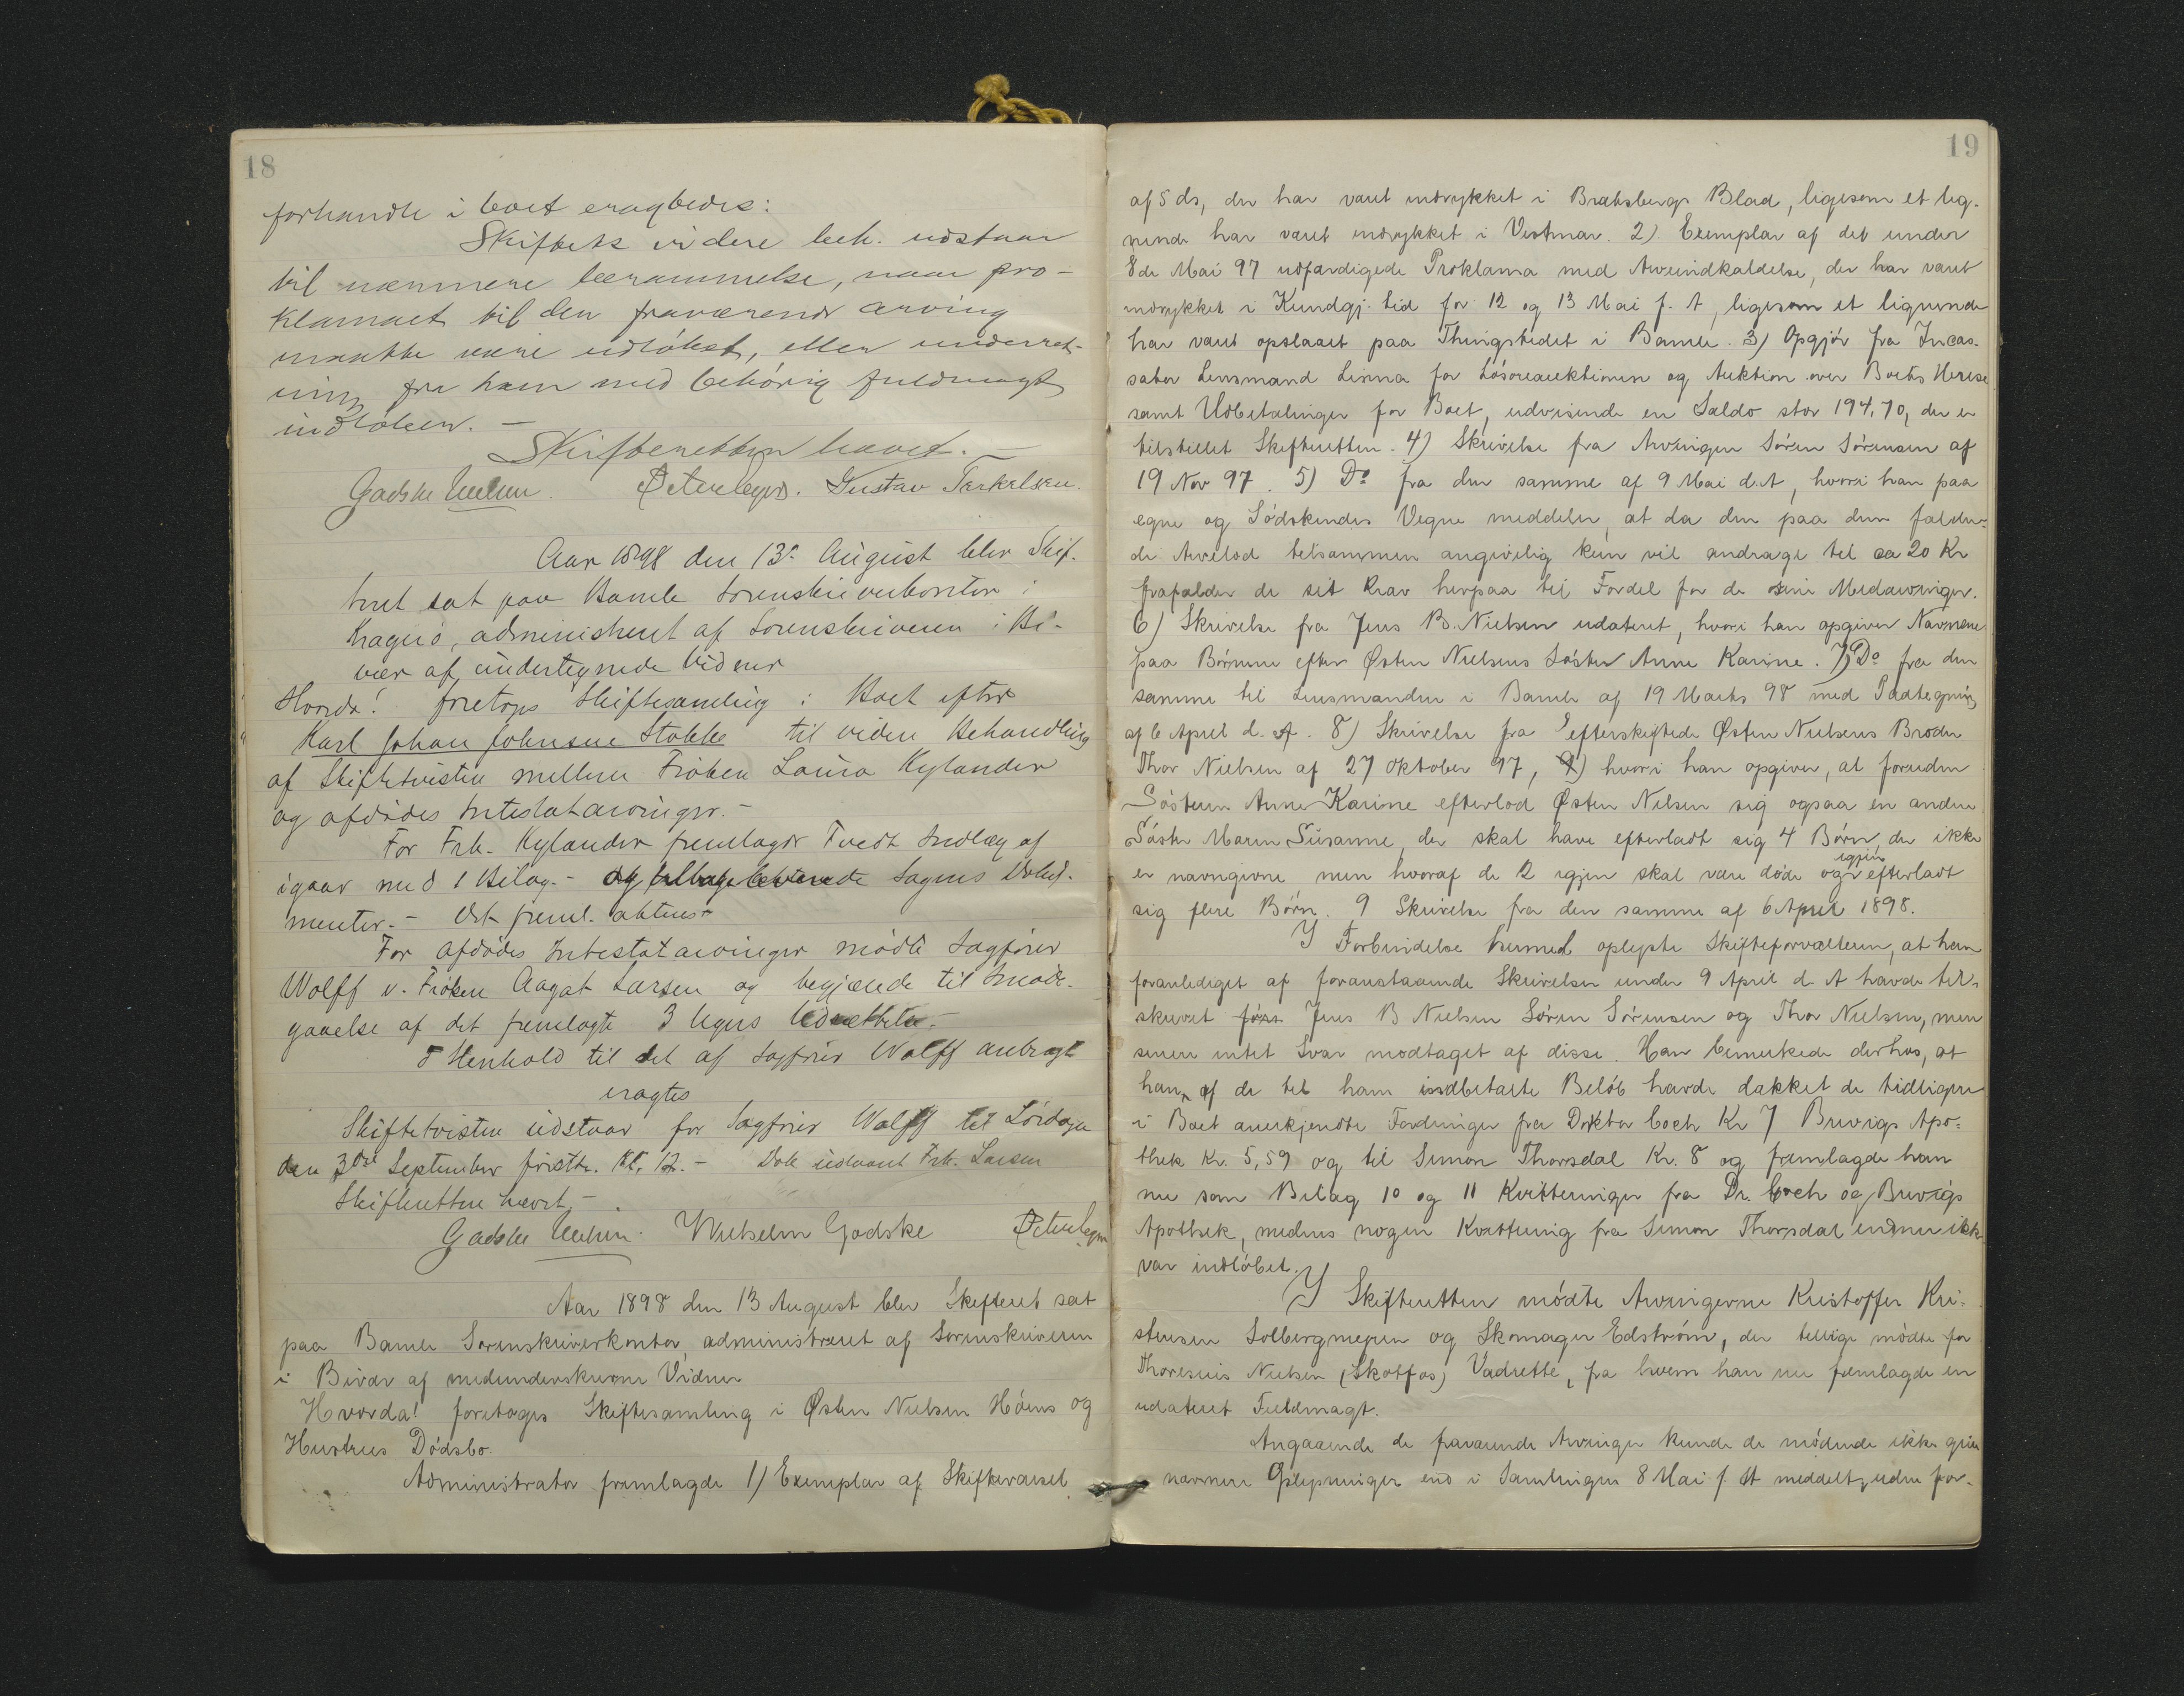 18
forhandle i boet eragtedes:
Skiftets videre beh. udstaar
til nærmere berammelse, naar pro-
klamaet til den fraværende arving
maatte være udløbet, eller underret-
ning fra ham med behørig fuldmagt
indløber. –
Skifteretten hævet. –
Gadske Peterleyn. Gustav Terkelsen.
Aar 1898 den 13de August blev Skif-
teret sat paa Bamle Sorenskriverkontor i
Kragerø, administreret af Sorenskriveren i Bi-
vær af undertegnede Vidner
Hvorda! foretoges Skiftesamling i Boet efter
Karl Johan Johnsen Stokke til videre Behandling
af Skiftetvisten mellem Frøken Laura Kylander
og afdødes Intestatarvinger. –
For Frk. Kylander fremlagde Tvedt Indlæg af
igaar med 1 Bilag. – og tilbageleverede Sagens Doku-
menter. – Det freml. akteres
For afdødes Intestatarvinger mødte Sagfører
Wolff v. Frøken Aagot Larsen og begjærede til Imøde-
gaaelse af det fremlagte 3 Ugers Udsættelse. –
I Henhold til det af Sagfører Wolff anbragte
eragtes
Skiftetvisten udstaar for Sagfører Wolff til Lørdagen
den 3die September førstk. Kl. 12. – Dok udlaant Frk. Larsen
Skifteretten hævet. –
Gadske Wilhelm Godske Peterleyn
Aar 1898 den 13 August blev Skifteret sat
paa Bamle Sorenskriverkontor, administreret af Sorenskriveren
i Bivær af medunderskrevne Vidner
Hvorda! foretoges Skiftesamling i Østen Nielsen Høens og
Hustrus Dødsbo.
Administrator fremlagde 1) Exemplar af Skiftevarsel
19
af 5 ds, der har været indrykket i Bratsbergs Blad, ligesom et lig-
nende har været indrykket i Vestmar. 2) Exemplar af det under
8de Mai 97 udfærdigede Proklama med Arveindkaldelse, der har været
indrykket i Kundgj. tid for 12 og 13 Mai f. A, ligesom et lignende
har været opslaaet paa Thingstedet i Bamle. 3) Opgjør fra Incas-
sator Lensmand Linna for Løsøreauktionen og Auktion over Boets Herese
samt Udbetalinger for Boet, udvisende en Saldo stor 194,70, der er
tilstillet Skifteretten. 4) Skrivelse fra Arvingen Søren Sørensen af
19 Nov 97. 5) Do fra den samme af 9 Mai d.A, hvori han paa
egne og Sødskendes Vegne meddeler, at da den paa dem falden-
de Arvelod tilsammen angivelig kun vil andrage til ca 20 Kr
frafalder de sit Krav herpaa til Fordel for de sine Medarvinger.
6) Skrivelse fra Jens B. Nielsen udateret, hvori han opgiver Navnene
paa Børnene efter Østen Nielsens Søster Anne Karine. 7) Do fra den
samme til Lensmanden i Bamle af 19 Marts 98 med Paategning
af 6 April d. A. 8) Skrivelse fra efterskiftede Østen Nielsens Broder
Thor Nielsen af 27 Oktober 97, 9) hvori han opgiver, at foruden
Søsteren Anne Karine efterlod Østen Nilsen sig ogsaa en anden
Søster Maren Susanne, der skal have efterladt sig 4 Børn, der ikke
er navngivne men hvoraf de 2 igjen skal være døde og igjen efterladt
sig flere Børn. 9 Skrivelse fra den samme af 6 April 1898.
I Forbindelse hermed oplyste Skifteforvalteren, at han
foranlediget af foranstaaende Skrivelser under 9 April d. A havde til-
skrevet førs Jens B Nielsen Søren Sørensen og Thor Nielsen, men
senere intet Svar modtaget af disse. Han bemerkede derhos, at
han af de til ham indbetalte Beløb havde dækket de tidligere
i Boet anerkjendte Fordringer fra Doktor Coch Kr 7 Brevigs Apo-
thek Kr. 5,59 og til Simon Thorsdal Kr. 8 og fremlagde han
nu som Bilag 10 og 11 Kvitteringer fra Dr. Coch og Brevigs
Apothek, medens nogen Kvittering fra Simon Thorsdal endnu ikke
var indløbet.
I Skifteretten mødte Arvingerne Kristoffer Kri-
stensen Solbergmyren og Skomager Edstrøm, der tillige mødte for
Thoresius Nielsen (Skotfos) Vadrette, fra hvem han nu fremlagde en
udateret Fuldmagt.
Angaaende de fraværende Arvinger kunde de mødende ikke give
nærmere Oplysninger end i Samlingen 8 Mai f. A meddelt, uden for-